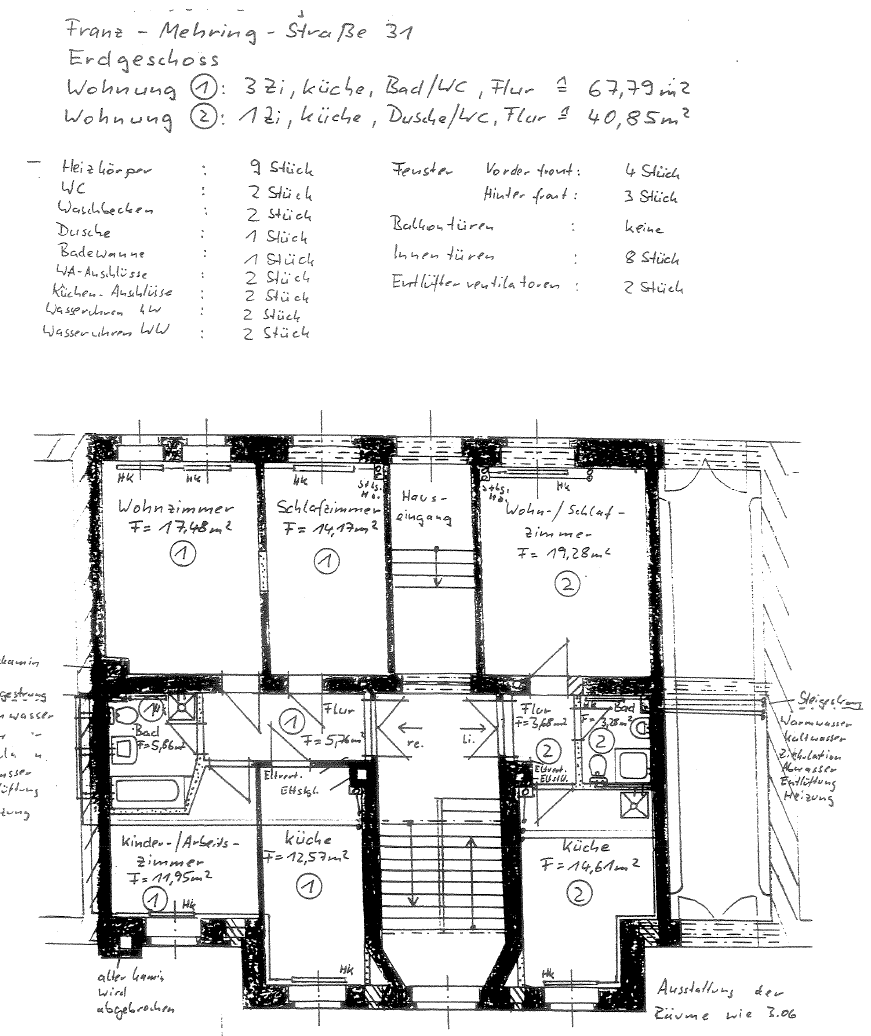 Franz - Mehring - Straße 31
Erdgeschoss
Wohnung ①: 3 Zi, Küche, Bad/WC, Flur ≙ 67,79 m²
Wohnung ②: 1 Zi, Küche, Dusche/WC, Flur ≙ 40,85 m²
Heizkörper : 9 Stück
WC : 2 Stück
Waschbecken : 2 Stück
Dusche : 1 Stück
Badewanne : 1 Stück
WA-Anschlüsse : 2 Stück
Küchen-Anschlüsse : 2 Stück
Wasseruhren KW : 2 Stück
Wasseruhren WW : 2 Stück
Fenster Vorderfront: 4 Stück
Hinterfront: 3 Stück
Balkontüren : keine
Innentüren : 8 Stück
Entlüfterventilatoren : 2 Stück
HK
HK
HK
HK
Wohnzimmer
F = 17,48 m²
①
Schlafzimmer
F = 14,17 m²
①
Haus-
eingang
Wohn-/Schlaf-
zimmer
F = 19,28 m²
②
kamin
Bad
F = 5,86 m²
①
Flur
F = 5,76 m²
re.
li.
Flur
F = 3,68 m²
②
Bad
F = 3,28 m²
②
Eltvert.
Eltvert.
Steigestrang
Warmwasser
Kaltwasser
Zirkulation
Abwasser
Entlüftung
Heizung
Kinder-/Arbeits-
zimmer
F = 11,95 m²
①
HK
Küche
F = 12,57 m²
①
HK
Küche
F = 14,61 m²
②
HK
alter Kamin
wird
abgebrochen
Ausstattung der
Räume wie 3.06